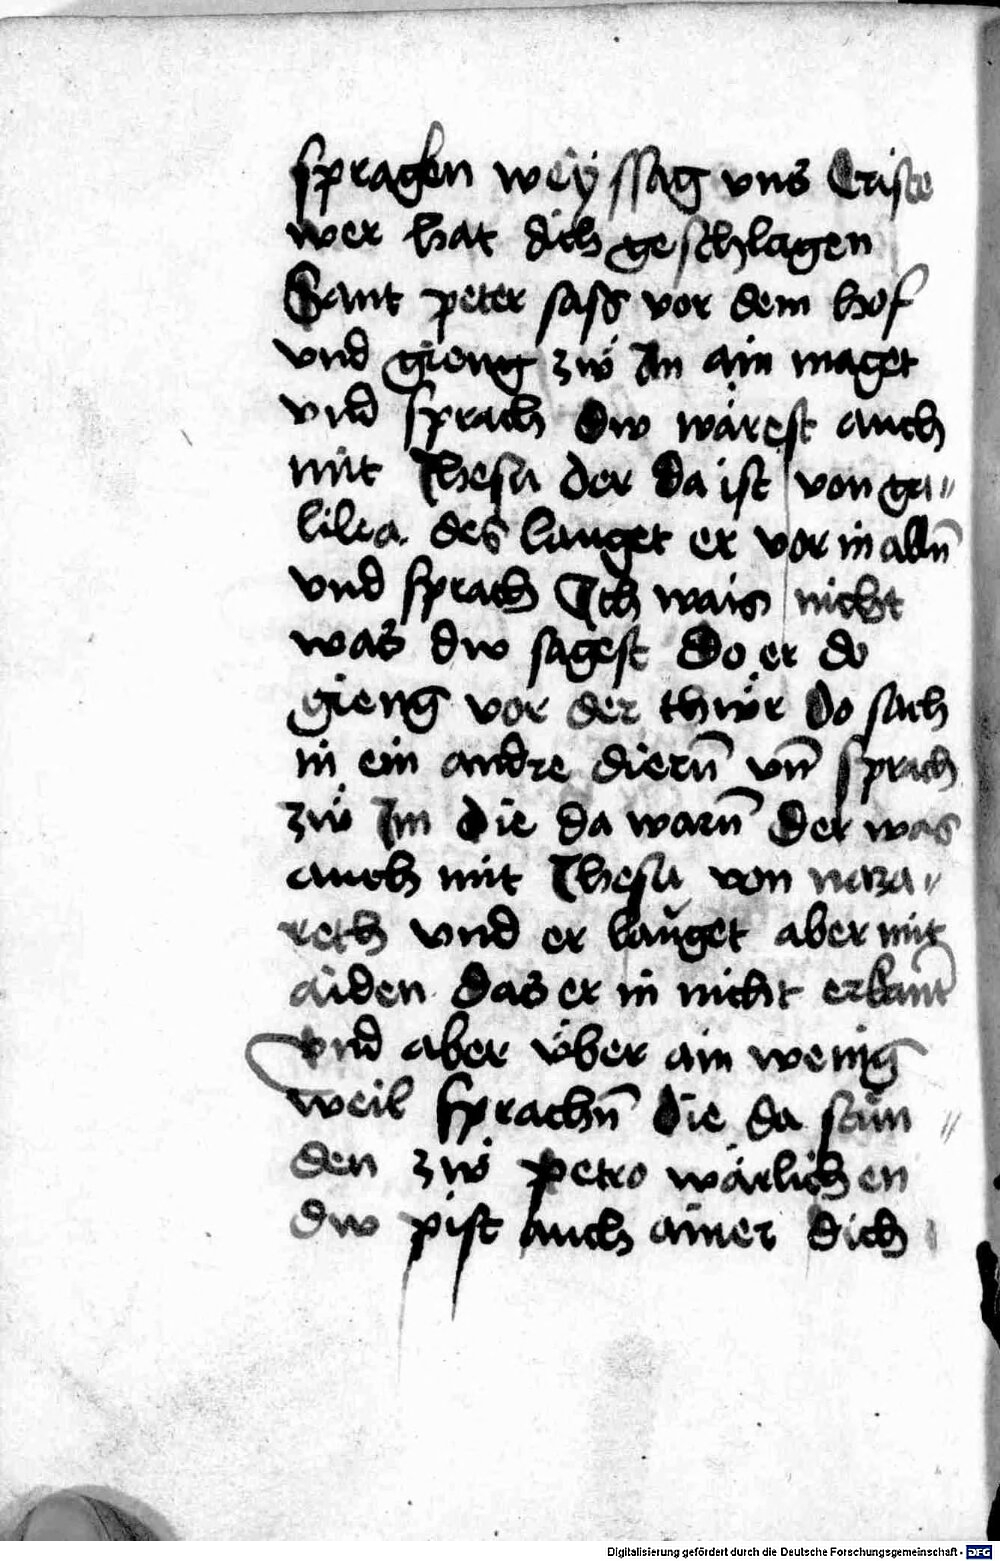 sprachen weÿssag vns Criste
wer hat dich geschlagen
Sant peter sass vor dem hof
vnd gieng zẅ Im ain maget
vnd sprach dw wärest auch
mit Jhesu der da ist von ga〃
lilea. des lauget er vor in alln̄
vnd sprach Ich wais nicht
was dw sagest Do er do
gieng vor der thẅr do sach
in ein andre diern̄ vn̄ sprach
zẅ Im die da warn̄ Der was
auch mit Jhesu von naza〃
reth vnd er lauget aber mit
aiden das er in nicht erkant
vnd aber über ain wenig
weil sprachn̄ die da stŭn〃
den zẅ petro wärlichen
dw pist auch ainer dich
Digitalisierung gefördert durch die Deutsche Forschungsgemeinschaft - DFG